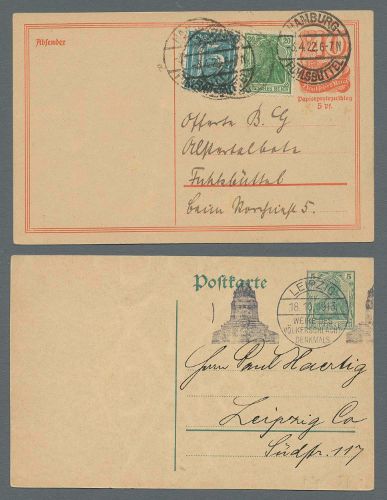 Absender
HAMBURG
5.4.22.6-7N
FUHLSBÜTTEL
Papierpreiszuschlag
5 Pf.
Offerte B. G
Alstertalbote
Fuhlsbüttel
beim
5.
Postkarte
LEIPZIG
18.10.1913
WEIHE DES
VÖLKERSCHLACHT
DENKMALS
Herrn Paul Haertig
Leipzig Co
Südstr. 117